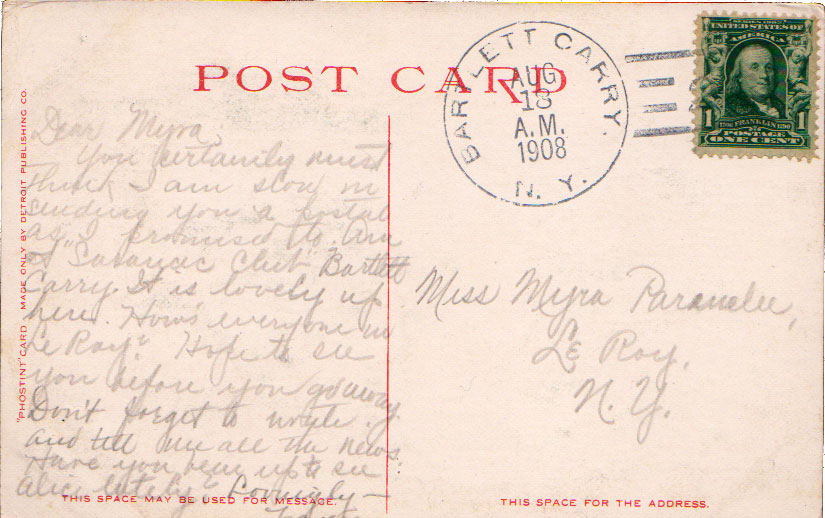 POST CARD
BARTLETT CARRY.
AUG
18
A.M.
1908
N. Y.
SERIES 1902
UNITED STATES OF
AMERICA
1706 FRANKLIN 1790
1 POSTAGE 1
ONE CENT
"PHOSTINT" CARD MADE ONLY BY DETROIT PUBLISHING CO.
Dear Myra,
You certainly must
think I am slow in
sending you a postal
as I promised to. Am
at "Saranac Club" Bartlett
Carry. It is lovely up
here. How's everyone in
Le Roy? Hope to see
you before you go away.
Don't forget to write,
and tell me all the news.
Have you been up to see
Alice lately? Lovingly—
THIS SPACE MAY BE USED FOR MESSAGE.
Miss Myra Parmelee,
Le Roy,
N. Y.
THIS SPACE FOR THE ADDRESS.